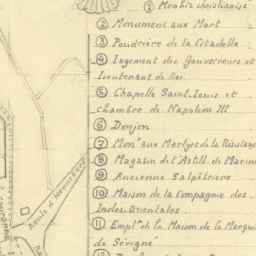 ① Menhir christianisé
② Monument aux Mort
③ Poudrière de la Citadelle
④ Logement des Gouverneurs et
Lieutenant de Roi
⑤ Chapelle Saint Louis et
chambre de Napoléon III
⑥ Donjon
⑦ Monᵗ aux Martyrs de la Résistance
⑧ Magasin de l'Artill. de Marine
⑨ Ancienne Salpêtrière
⑩ Maison de la Compagnie des
Indes Orientales
⑪ Emplᵗ de la Maison de la Marquise
de Sévigné
Route d